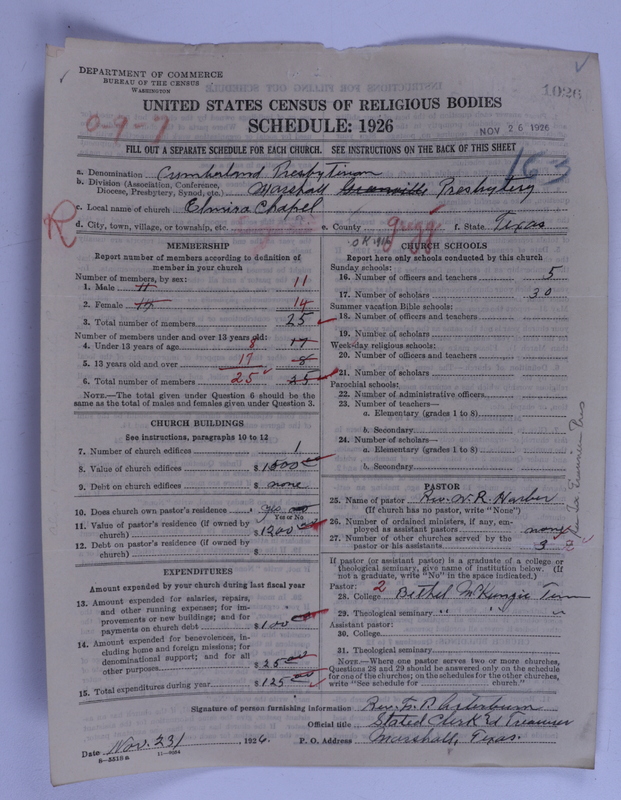 DEPARTMENT OF COMMERCE
BUREAU OF THE CENSUS
WASHINGTON
1926
UNITED STATES CENSUS OF RELIGIOUS BODIES
SCHEDULE: 1926
0-9-7
NOV 26 1926
FILL OUT A SEPARATE SCHEDULE FOR EACH CHURCH. SEE INSTRUCTIONS ON THE BACK OF THIS SHEET
163
a. Denomination Cumberland Presbyterian
b. Division (Association, Conference, Diocese, Presbytery, Synod, etc.) Marshall Presbytery
c. Local name of church Elmira Chapel
R
d. City, town, village, or township, etc. e. County Gregg f. State Texas
MEMBERSHIP
Report number of members according to definition of member in your church
Number of members, by sex:
1. Male 11 11
2. Female 14 14
3. Total number of members 25
Number of members under and over 13 years old:
4. Under 13 years of age 8 17
5. 13 years old and over 17 8
6. Total number of members 25 25
NOTE.—The total given under Question 6 should be the same as the total of males and females given under Question 3.
CHURCH BUILDINGS
See instructions, paragraphs 10 to 12
7. Number of church edifices 1
8. Value of church edifices $1500.00
9. Debt on church edifices $ none
10. Does church own pastor's residence? yes
Yes or No
11. Value of pastor's residence (if owned by church) $1200.00
12. Debt on pastor's residence (if owned by church) $
EXPENDITURES
Amount expended by your church during last fiscal year
13. Amount expended for salaries, repairs, and other running expenses; for improvements or new buildings; and for payments on church debt $100.00
14. Amount expended for benevolences, including home and foreign missions; for denominational support; and for all other purposes $25.00
15. Total expenditures during year $125.00
CHURCH SCHOOLS
Report here only schools conducted by this church
Sunday schools:
16. Number of officers and teachers 5
17. Number of scholars 30
Summer vacation Bible schools:
18. Number of officers and teachers
19. Number of scholars
Weekday religious schools:
20. Number of officers and teachers
21. Number of scholars
Parochial schools:
22. Number of administrative officers
23. Number of teachers—
a. Elementary (grades 1 to 8)
b. Secondary
24. Number of scholars—
a. Elementary (grades 1 to 8)
b. Secondary
PASTOR
25. Name of pastor Rev. W. R. Harber
(If church has no pastor, write "None")
26. Number of ordained ministers, if any, employed as assistant pastors none
27. Number of other churches served by the pastor or his assistants 3
If pastor (or assistant pastor) is a graduate of a college or theological seminary, give name of institution below. (If not a graduate, write "No" in the space indicated.)
Pastor: 2
28. College Bethel McKenzie Tenn
29. Theological seminary " " "
Assistant pastor:
30. College
31. Theological seminary
NOTE.—Where one pastor serves two or more churches, Questions 28 and 29 should be answered only on the schedule for one of the churches; on the schedules for the other churches, write "See schedule for church."
Signature of person furnishing information Rev.
Official title Stated Clerk & Treasurer
Date Nov. 23, 1926. P. O. Address Marshall, Texas.
8-5518a 11-9084